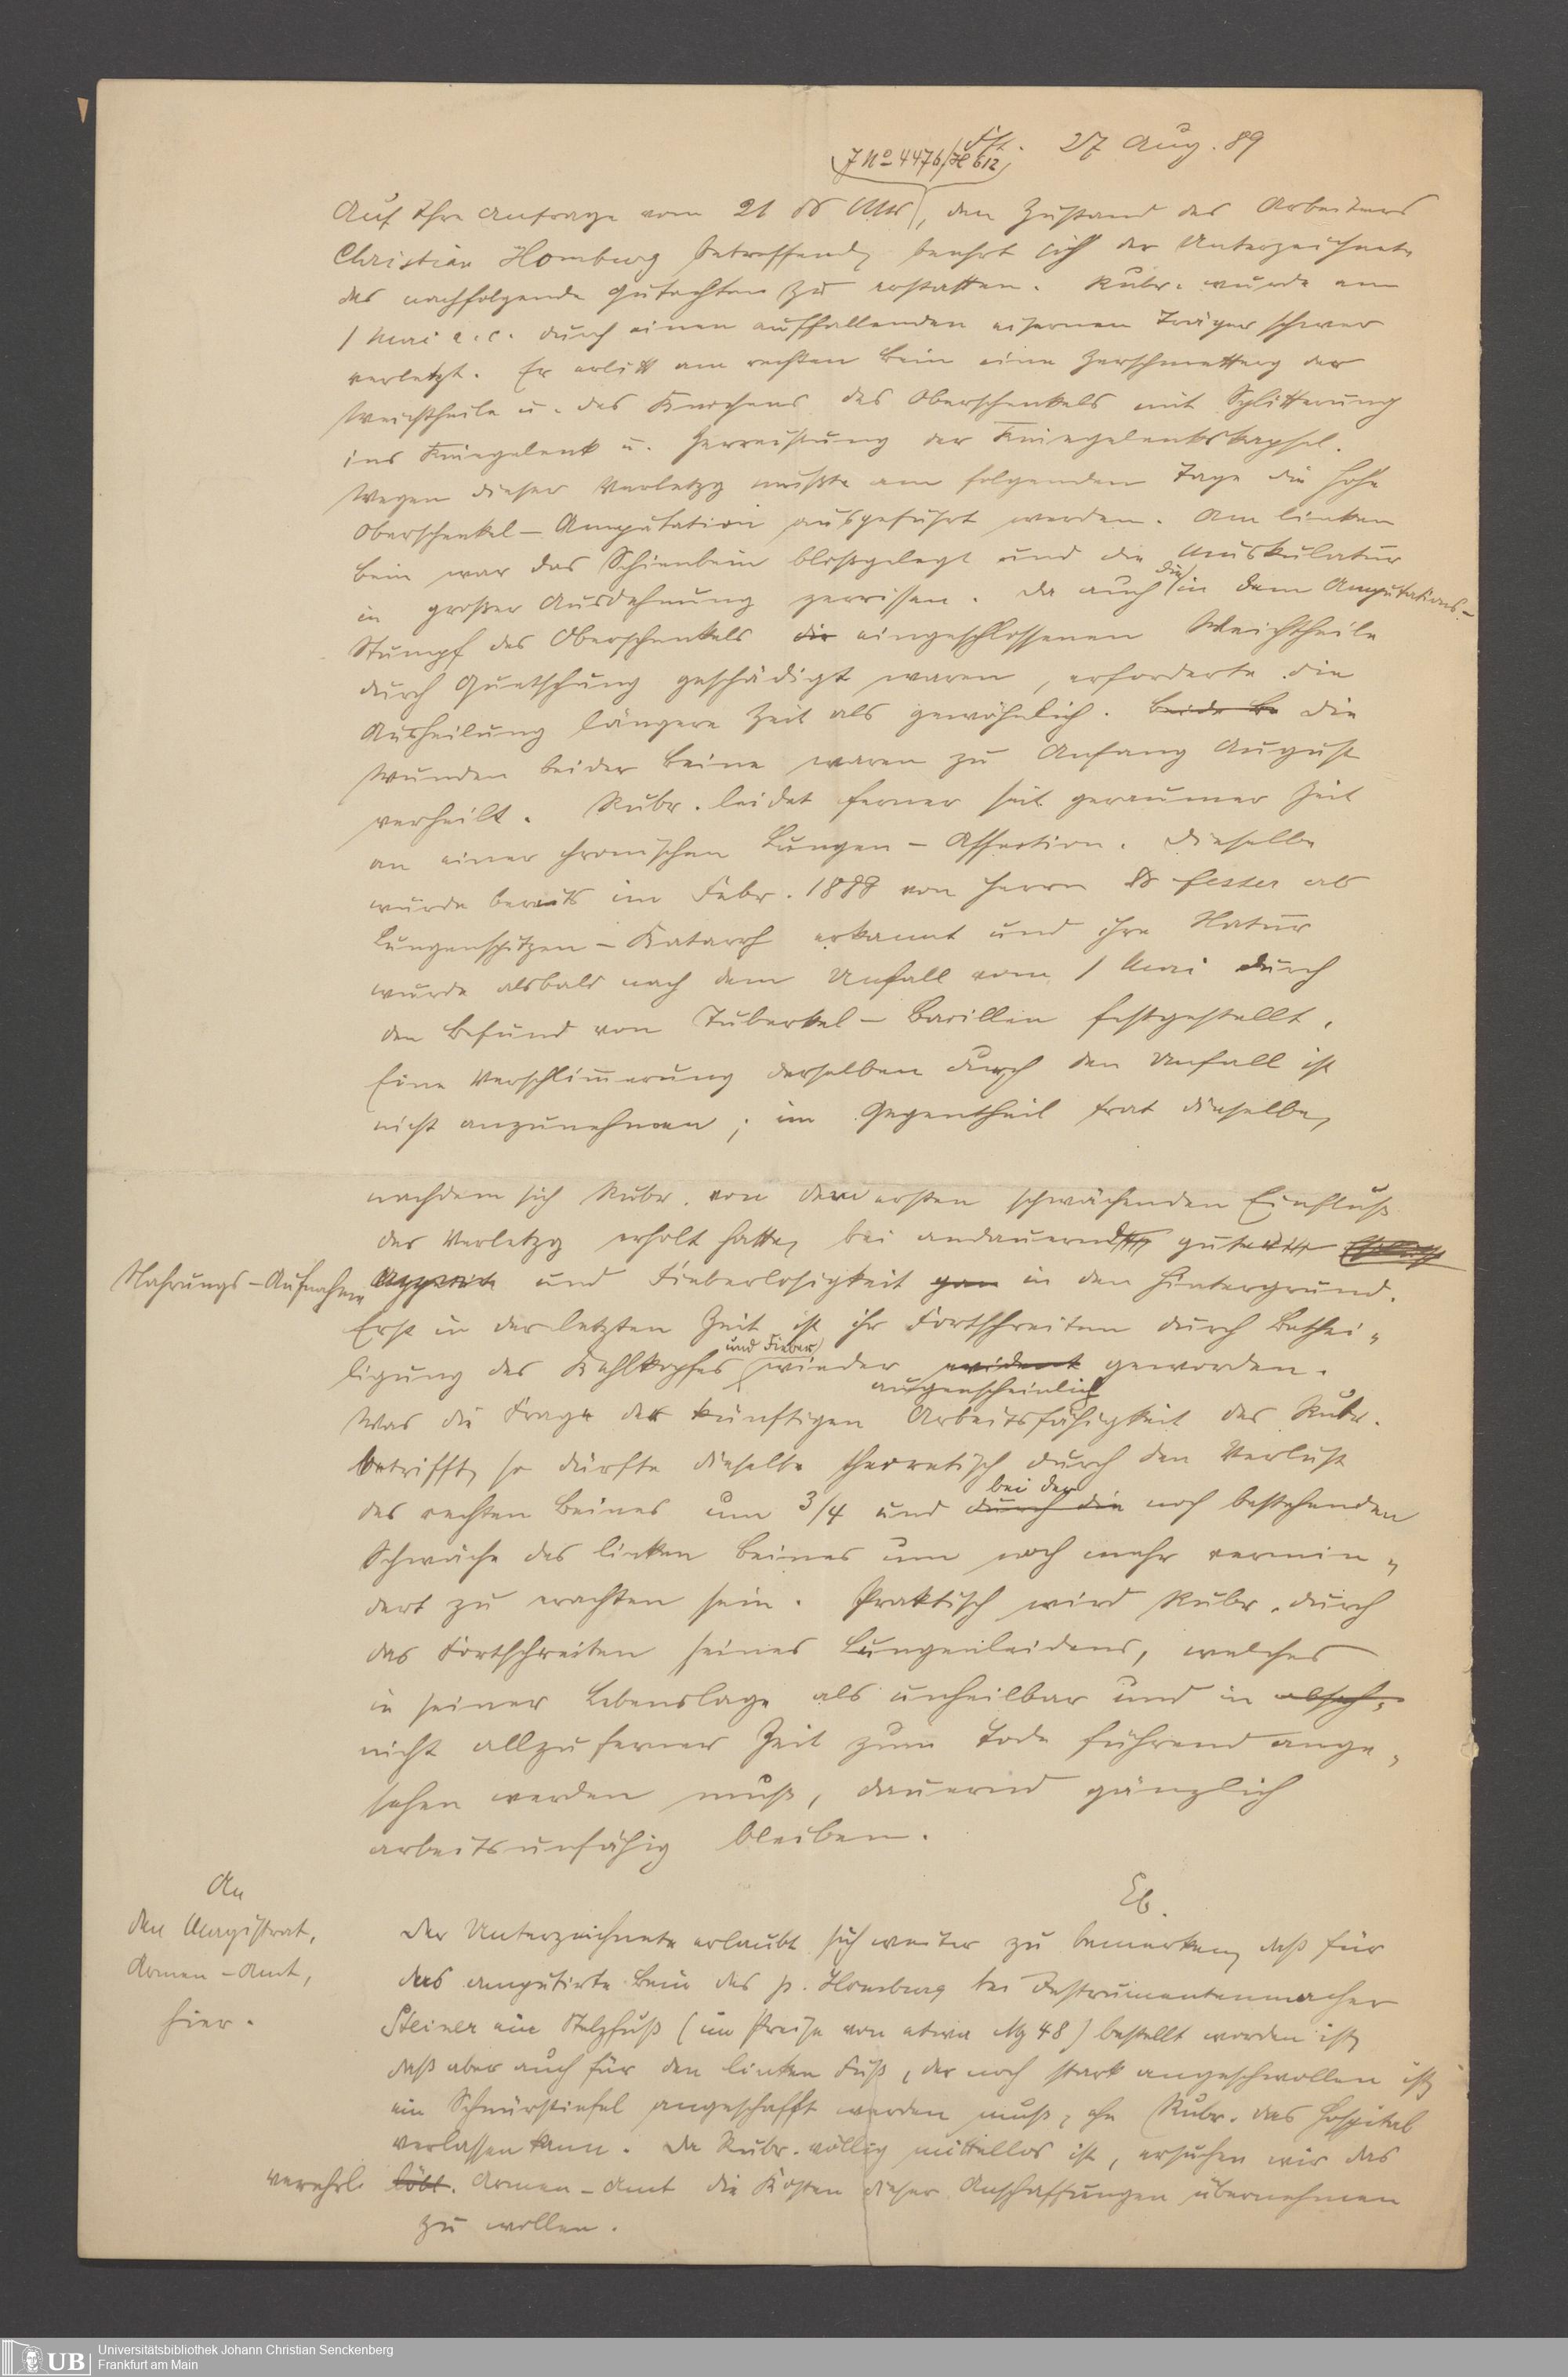 Ff. 27 Aug. 89
J No 4476/H 612
Auf Ihre Anfrage vom 21 ds Mts, den Zustand des Arbeiters
Christian Homburg betreffend, beehrt sich der Unterzeichnete
das nachfolgende Gutachten zu erstatten. Rubr. wurde am
1 Mai a.c. durch einen auffallenden eisernen Träger schwer
verletzt. Er erlitt am rechten Bein eine Zerschmetterg der
Weichtheile u. des Knochens des Oberschenkels mit Splitterung
ins Kniegelenk u. Zerreißung der Kniegelenkskapsel.
Wegen dieser Verletzg mußte am folgenden Tage die hohe
Oberschenkel-Amputation ausgeführt werden. Am linken
Bein war das Schienbein bloßgelegt und die Muskulatur
in großer Ausdehnung zerrissen. Da auch die in dem Amputations-
Stumpf des Oberschenkels die eingeschlossenen Weichtheile
durch Quetschung geschädigt waren, erforderte die
Ausheilung längere Zeit als gewöhnlich. Beide Be Die
Wunden beider Beine waren zu Anfang August
verheilt. Rubr. leidet ferner seit geraumer Zeit
an einer chronischen Lungen-Affection. Dieselbe
wurde bereits im Febr. 1889 von Herrn Dr Fester als
Lungenspitzen-Katarrh erkannt und ihre Natur
wurde alsbald nach dem Unfall vom 1 Mai durch
den Befund von Tuberkel-Bacillen festgestellt.
Eine Verschlim̅erung derselben durch den Unfall ist
nicht anzunehmen; im Gegentheil trat dieselbe,
nachdem sich Rubr. von dem ersten schwächenden Einfluß
der Verletzg erholt hatte, bei andauernd guter
Nahrungs-Aufnahme Appetite und Fieberlosigkeit gan in den Hintergrund.
Erst in der letzten Zeit ist ihr Fortschreiten durch Bethei-
ligung des Kehlkopfes und Fieber wieder evident geworden.
augenscheinlich
Was die Frage der künftigen Arbeitsfähigkeit des Rubr.
betrifft, so dürfte dieselbe theoretisch durch den Verlust
des rechten Beines um 3/4 und durch die bei der noch bestehenden
Schwäche des linken Beines um noch mehr vermin-
dert zu erachten sein. Praktisch wird Rubr. durch
das Fortschreiten seines Lungenleidens, welches
in seiner Lebenslage als unheilbar und in abseh-
nicht allzu ferner Zeit zum Tode führend ange-
sehen werden muß, dauernd gänzlich
arbeitsunfähig bleiben.
Eb.
An
den Magistrat,
Armen-Amt,
hier.
Der Unterzeichnete erlaubt sich weiter zu bemerken, daß für
das amputirte Bein des p. Homburg bei Instrumentenmacher
Steiner ein Stelzfuß (im Preise von etwa M 48) bestellt worden ist,
daß aber auch für den linken Fuß, der noch stark angeschwollen ist,
ein Schnürstiefel angeschafft werden muß, ehe Rubr. das Hospital
verlassen kann. Da Rubr. völlig mittellos ist, ersuchen wir das
verehrl. löbl. Armen-Amt die Kosten dieser Anschaffungen übernehmen
zu wollen.
UB Universitätsbibliothek Johann Christian Senckenberg
Frankfurt am Main